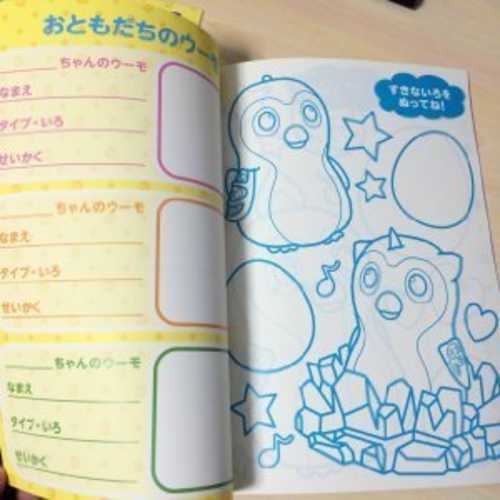 おともだちのウーモ
ちゃんのウーモ
なまえ
タイプ・いろ
せいかく
ちゃんのウーモ
なまえ
タイプ・いろ
せいかく
ちゃんのウーモ
なまえ
タイプ・いろ
せいかく
すきないろを
ぬってね!